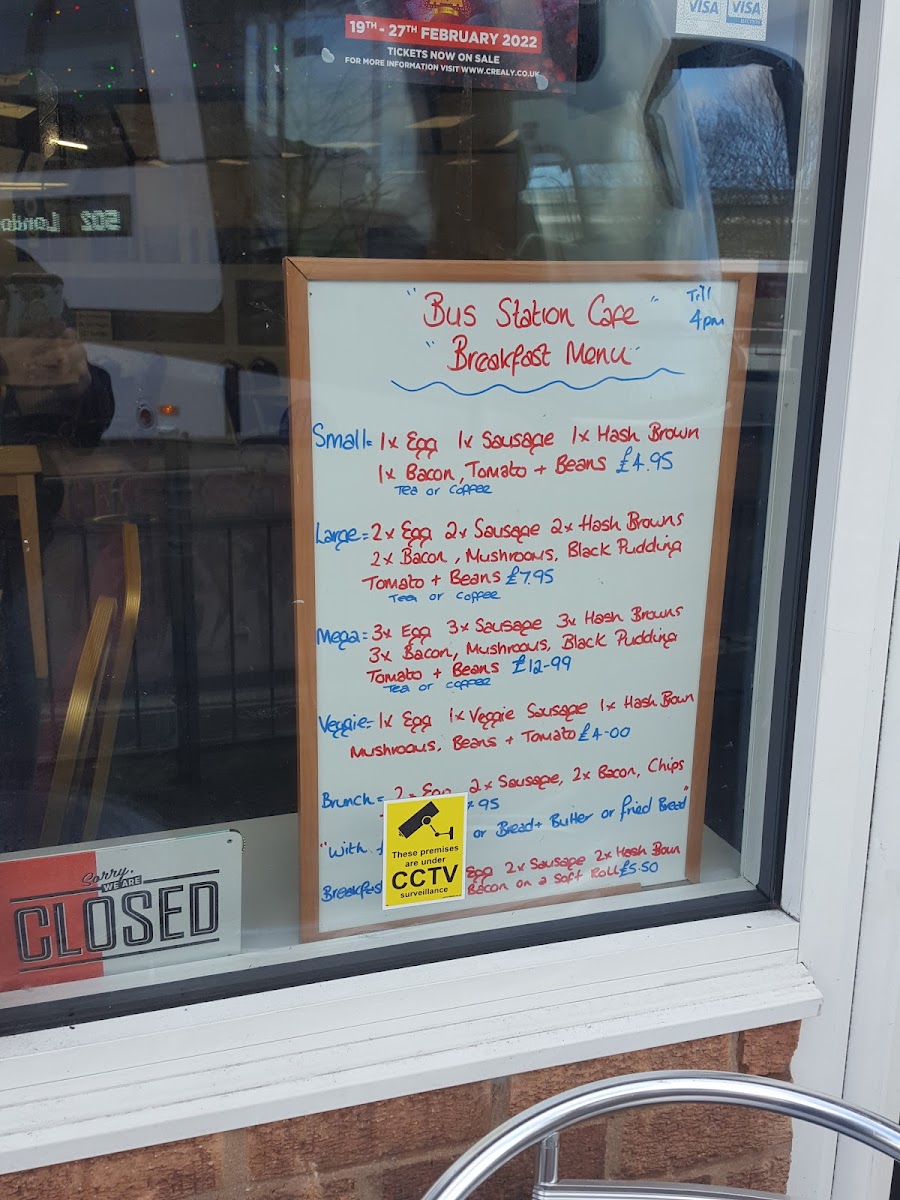 19TH - 27TH FEBRUARY 2022
TICKETS NOW ON SALE
FOR MORE INFORMATION VISIT WWW.CREALY.CO.UK
VISA VISA
502 Londo
"Bus Station Cafe" Till
"Breakfast Menu" 4pm
Small= 1x Egg 1x Sausage 1x Hash Brown
1x Bacon, Tomato + Beans £4.95
Tea or Coffee
Large= 2x Egg 2x Sausage 2x Hash Browns
2x Bacon, Mushrooms, Black Pudding
Tomato + Beans £7.95
Tea or Coffee
Mega= 3x Egg 3x Sausage 3x Hash Browns
3x Bacon, Mushrooms, Black Pudding
Tomato + Beans £12-99
Tea or coffee
Veggie= 1x Egg 1x Veggie Sausage 1x Hash Bown
Mushrooms, Beans + Tomato £4-00
Brunch= 2x Egg 2x Sausage, 2x Bacon, Chips
.95
"With or Bread + Butter or fried Bread"
Breakfast Egg 2x Sausage 2x Hash Boun
Bacon on a Soft Roll £5-50
These premises
are under
CCTV
surveillance
Sorry,
WE ARE
CLOSED